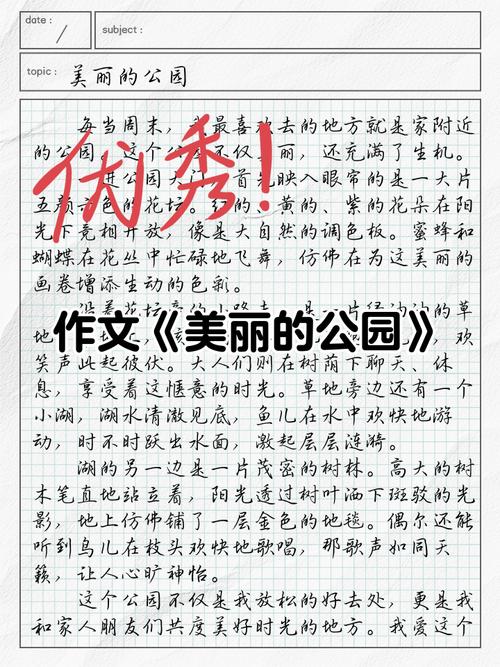 date :
subject :
topic : 美丽的公园
每当周末，我最喜欢去的地方就是家附近
的公园。这个公园不仅美丽，还充满了生机。
进公园大门，首先映入眼帘的是一大片
五颜六色的花坛。红的、黄的、紫的花朵在阳
光下竞相开放，像是大自然的调色板。蜜蜂和
蝴蝶在花丛中忙碌地飞舞，仿佛在为这美丽的
画卷增添生动的色彩。
优秀！
沿着花坛旁的小路走，是一片绿油油的草
作文《美丽的公园》
地
欢
笑声此起彼伏。大人们则在树荫下聊天、休
息，享受着这惬意的时光。草地旁边还有一个
小湖，湖水清澈见底，鱼儿在水中欢快地游
动，时不时跃出水面，激起层层涟漪。
湖的另一边是一片茂密的树林。高大的树
木笔直地站立着，阳光透过树叶洒下斑驳的光
影，地上仿佛铺了一层金色的地毯。偶尔还能
听到鸟儿在枝头欢快地歌唱，那歌声如同天
籁，让人心旷神怡。
这个公园不仅是我放松的好去处，更是我
和家人朋友们共度美好时光的地方。我爱这个